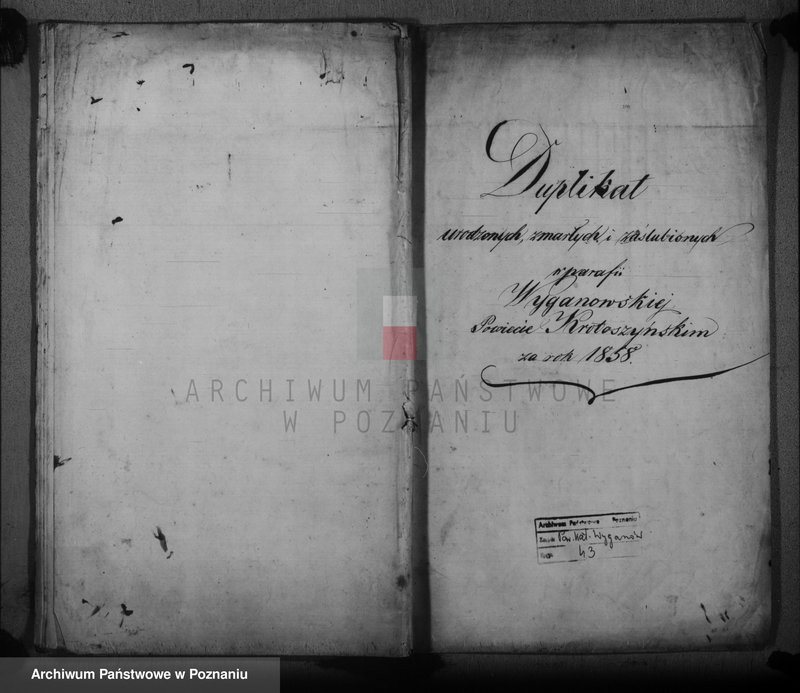 Duplikat
urodzonych, zmarłych, i zaślubionych
w parafii
Wyganowskiej
Powiecie Krotoszyńskim
za rok 1858.
ARCHIWUM PAŃSTWOWE
W POZNANIU
Archiwum Państwowe Poznaniu
Par. Kat. Wyganów
43
Archiwum Państwowe w Poznaniu